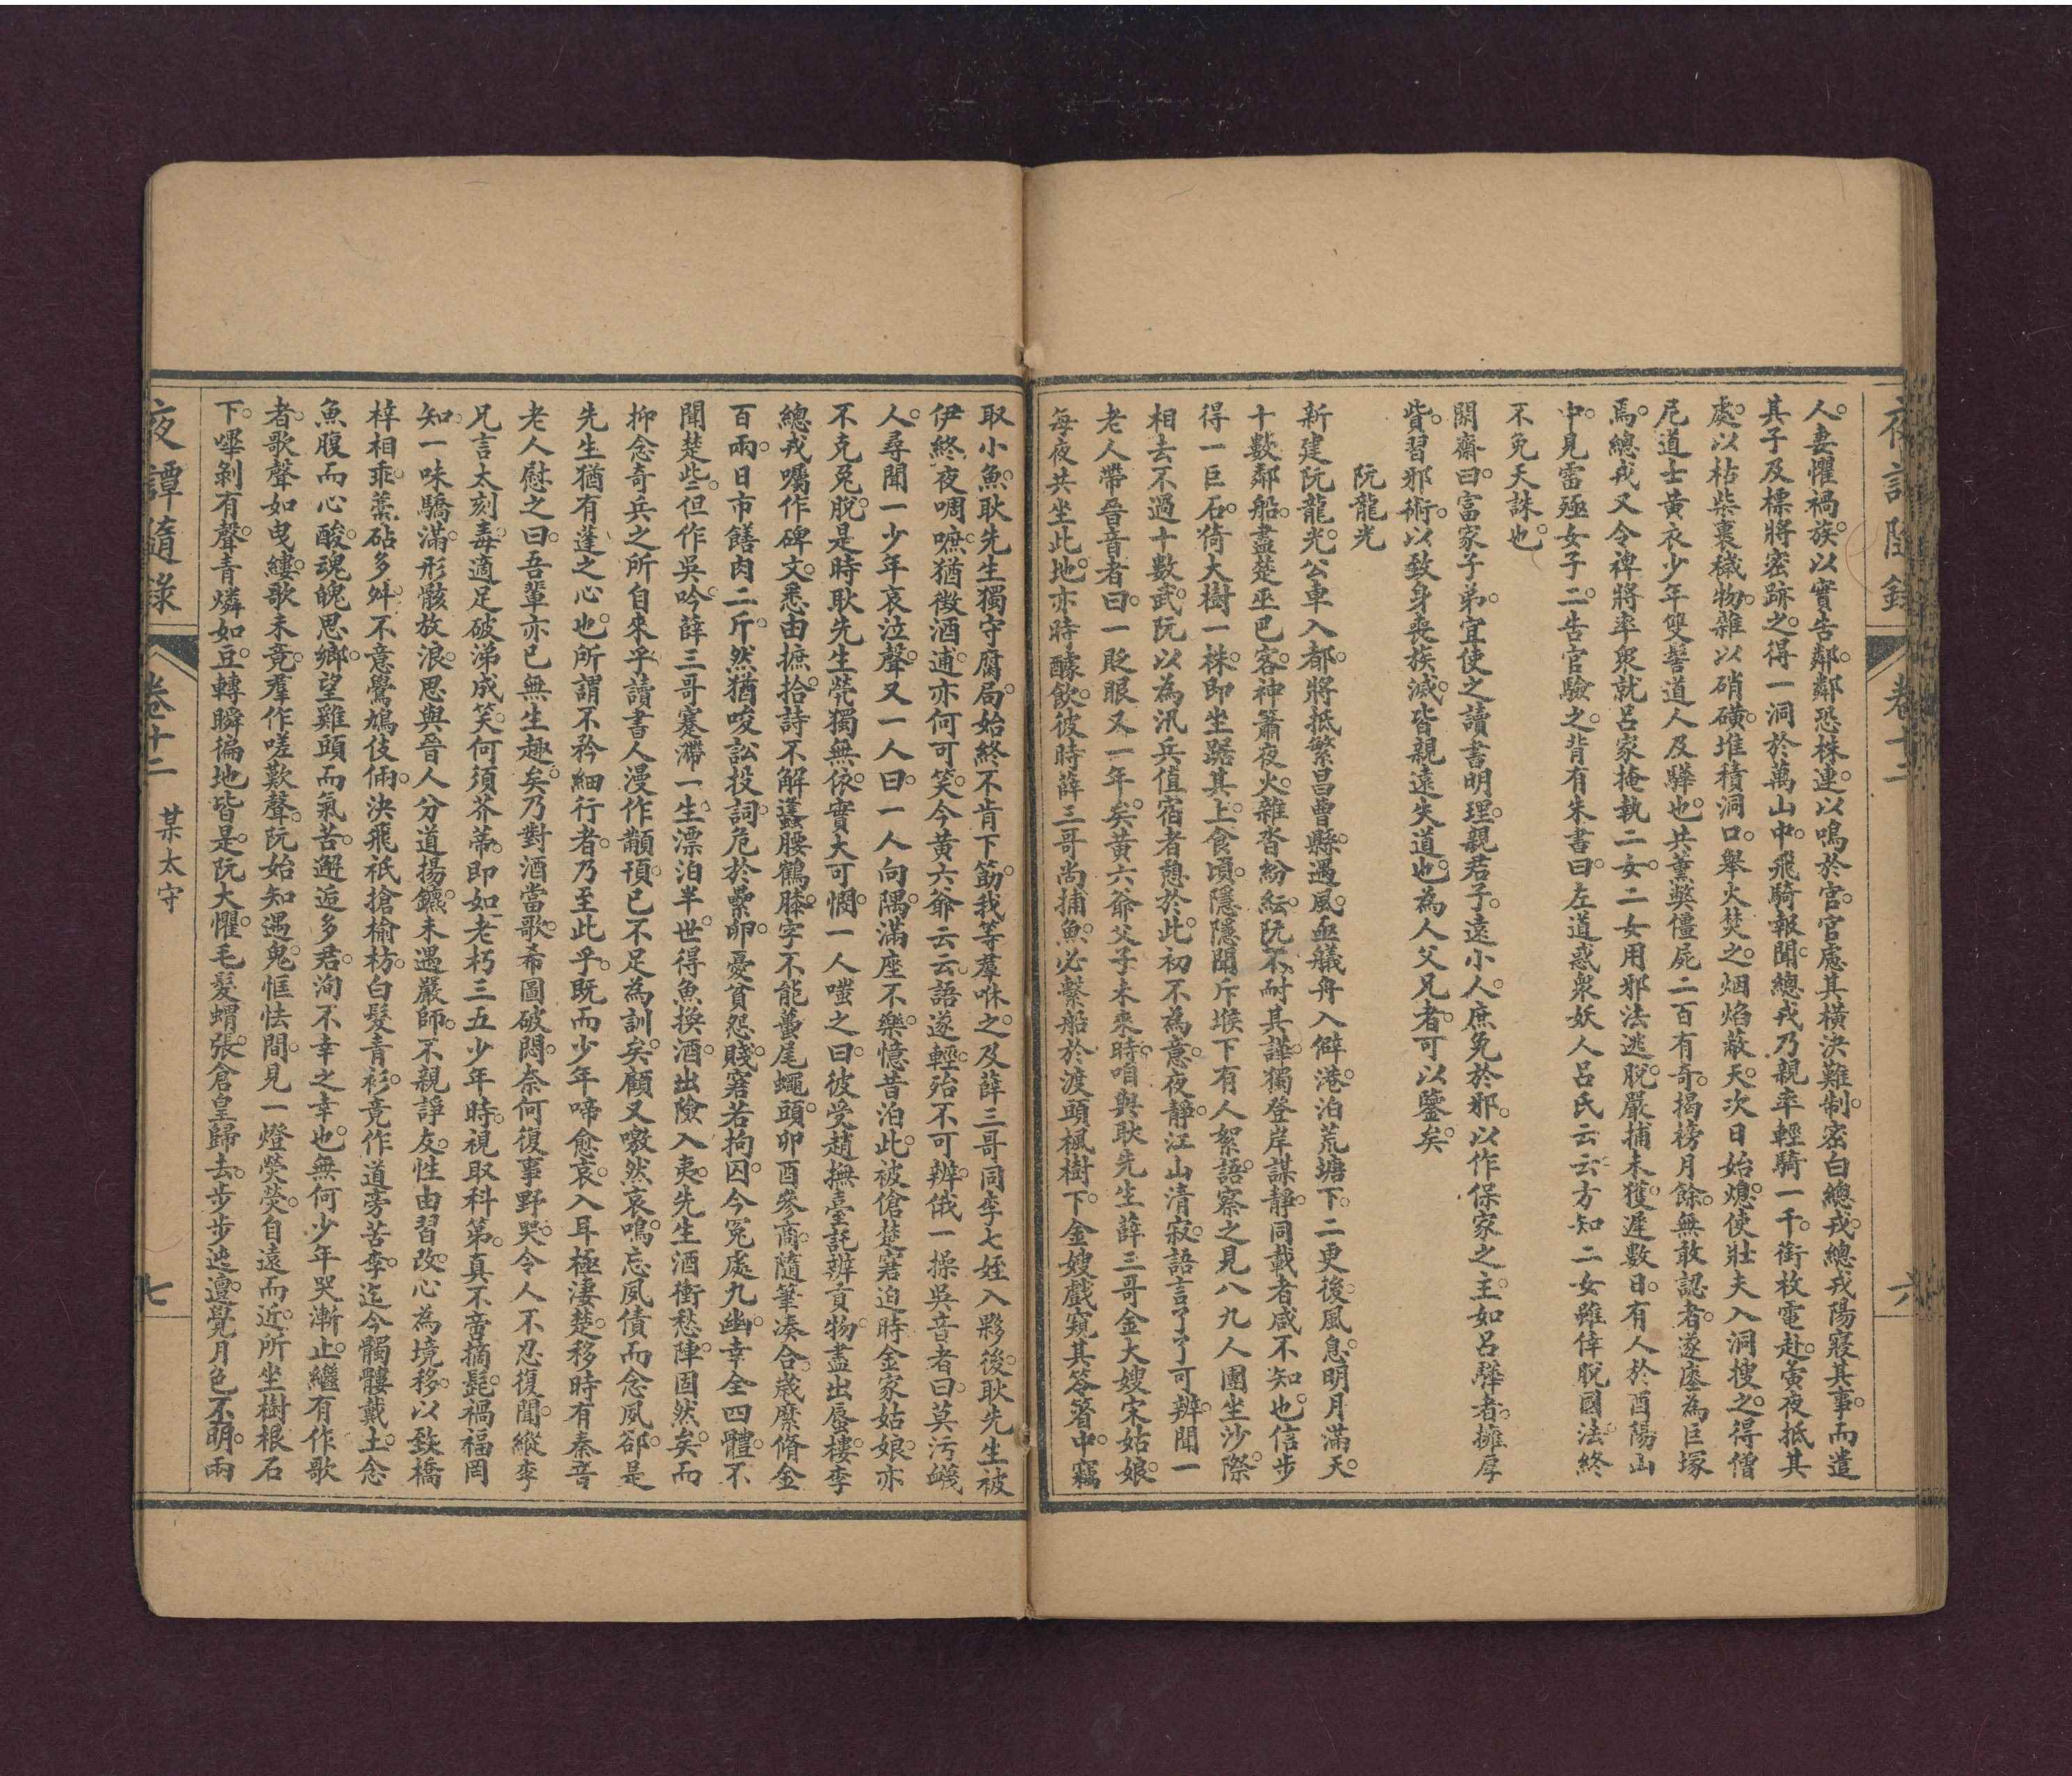 夜譚隨錄 卷十二 六
人。妻懼禍族。以實告鄰。鄰恐株連。以鳴於官。官慮其橫決難制。密白總戎。總戎陽寢其事。而遣
其子及標將密跡之。得一洞於萬山中。飛騎報聞。總戎乃親率輕騎一千。銜枚電赴。寅夜抵其
處。以枯柴裹穢物。雜以硝磺。堆積洞口。舉火焚之。烟焰蔽天。次日始熄。使壯夫入洞搜之。得僧
尼道士黃衣少年雙髻道人及驊也。共薰獘僵屍二百有奇。揭榜月餘。無敢認者。遂塵為巨塚
焉。總戎又令裨將率眾就呂家掩執二女。二女用邪法逃脫。嚴捕未獲。遲數日。有人於酉陽山
中。見雷殛女子二。告官驗之。背有朱書曰。左道惑眾妖人呂氏云云。方知二女雖倖脫國法。終
不免天誅也。
閑齋曰。富家子弟。宜使之讀書明理。親君子。遠小人。庶免於邪。以作保家之主。如呂驊者。擁厚
貲。習邪術。以致身喪族滅。皆親遠失道也。為人父兄者。可以鑒矣。
阮龍光
新建阮龍光。公車入都。將抵繁昌曹縣。遇風。亟艤舟入僻港。泊荒塘下。二更後風息。明月滿天。
十數鄰船。盡楚巫巴客。神簫夜火。雜沓紛紜。阮不耐其譁。獨登岸謀靜。同載者咸不知也。信步
得一巨石。倚大樹一株。即坐踞其上。食頃。隱隱聞斥堠下有人絮語。察之見八九人團坐沙際。
相去不過十數武。阮以為汛兵值宿者憩於此。初不為意。夜靜。江山清寂。語言了了可辨。聞一
老人帶晉音者。曰。一眨眼又一年矣。黃六爺父子未來時。咱與耿先生薛三哥金大嫂宋姑娘。
每夜共坐此地。亦時醵飲。彼時薛三哥尚捕魚。必繫船於渡頭楓樹下。金嫂戲窺其笭箵中。竊
取小魚。耿先生獨守腐局。始終不肯下筯。我等羣咻之。及薛三哥同李七姪入夥後。耿先生被
伊終夜啁嗻。猶徵酒逋。亦何可笑。今黃六爺云云。語遂輕殆不可辨。俄一操吳音者。曰。莫汚衊
人。尋聞一少年哀泣聲。又一人曰。一人向隅。滿座不樂。憶昔泊此。被傖楚窘迫時。金家姑娘。亦
不克免脫。是時耿先生煢獨無依。實大可憫。一人嗤之。曰。彼受趙撫臺託辨貢物。盡出蜃樓。李
總戎囑作碑文。悉由摭拾。詩不解蠭腰鶴膝。字不能蠆尾蠅頭。卯酉參商。隨筆湊合。歲縻脩金
百兩。日市饍肉二斤。然猶唆訟投詞。危於纍卵。憂貧怨賤。窘若拘囚。今冤處九幽。幸全四體。不
聞楚些。但作吳吟。薛三哥蹇滯一生。漂泊半世。得魚換酒。出險入夷。先生酒衝愁陣。固然矣。而
抑念奇兵之所自來乎。讀書人漫作顢頇。已不足為訓矣。顧又噭然哀鳴。忘夙債而念夙郤。是
先生猶有蓬之心也。所謂不矜細行者。乃至此乎。既而少年啼愈哀。入耳極淒楚。移時有秦音
老人慰之曰。吾輩亦已無生趣矣。乃對酒當歌。希圖破悶。奈何復事野哭。令人不忍復聞。縱李
兄言太刻毒。適足破涕成笑。何須芥蒂。即如老朽三五少年時。視取科第。真不啻摘髭。禍福罔
知。一味驕滿。形骸放浪。思與晉人分道揚鑣。未遇嚴師。不親諍友。性由習改。心為境移。以致橋
梓相乖。藁砧多舛。不意鸒鳩伎倆。決飛祇搶榆枋。白髮青衫。竟作道旁苦李。迄今髑髏戴土。念
魚腹而心酸。魂魄思鄉。望雞頭而氣苦。邂逅多君。洵不幸之幸也。無何少年哭漸止。繼有作歌
者。歌聲如曳縷。歌未竟。羣作嗟歎聲。阮始知遇鬼。恇怯間。見一燈熒熒。自遠而近。所坐樹根石
下。嗶剝有聲。青燐如豆。轉瞬徧地皆是。阮大懼。毛髮蝟張。倉皇歸去。步步迍邅。覺月色不明。雨
夜譚隨錄 卷十二 某太守 七